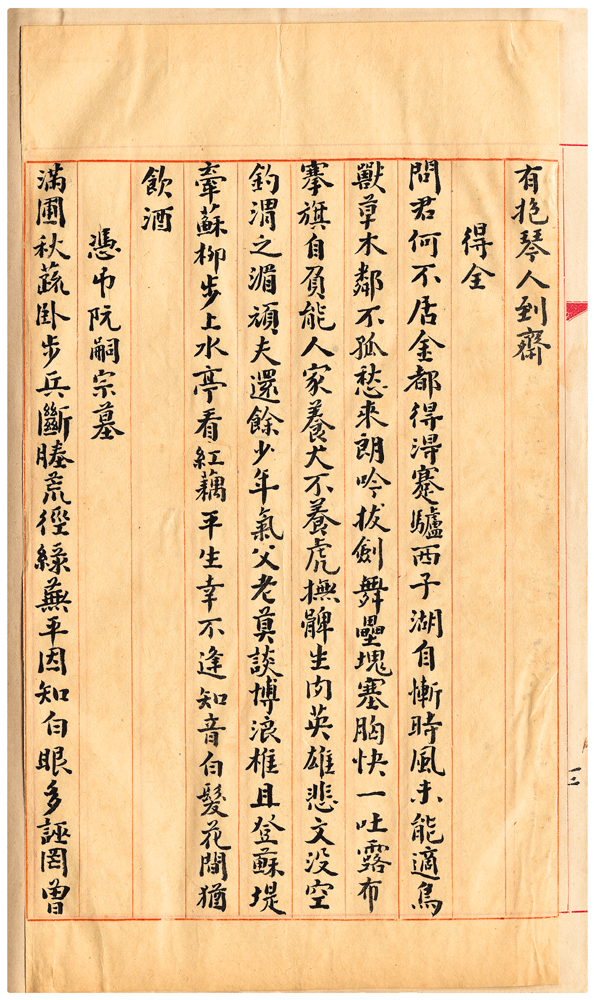 有抱琴人到齋
得全
問君何不居金都得得蹇驢西子湖自慚時風未能適鳥
獸草木鄰不孤愁來朗吟拔劍舞壘塊塞胸快一吐露布
搴旗自負能人家養犬不養虎撫髀生肉英雄悲文沒空
釣渭之湄頑夫還餘少年氣父老莫談博浪椎且登蘇堤
牽蘇柳步上水亭看紅藕平生幸不逢知音白髮花間猶
飲酒
憑吊阮嗣宗墓
滿圃秋蔬卧步兵斷塍荒徑綠蕪平因知白眼多誣罔曾